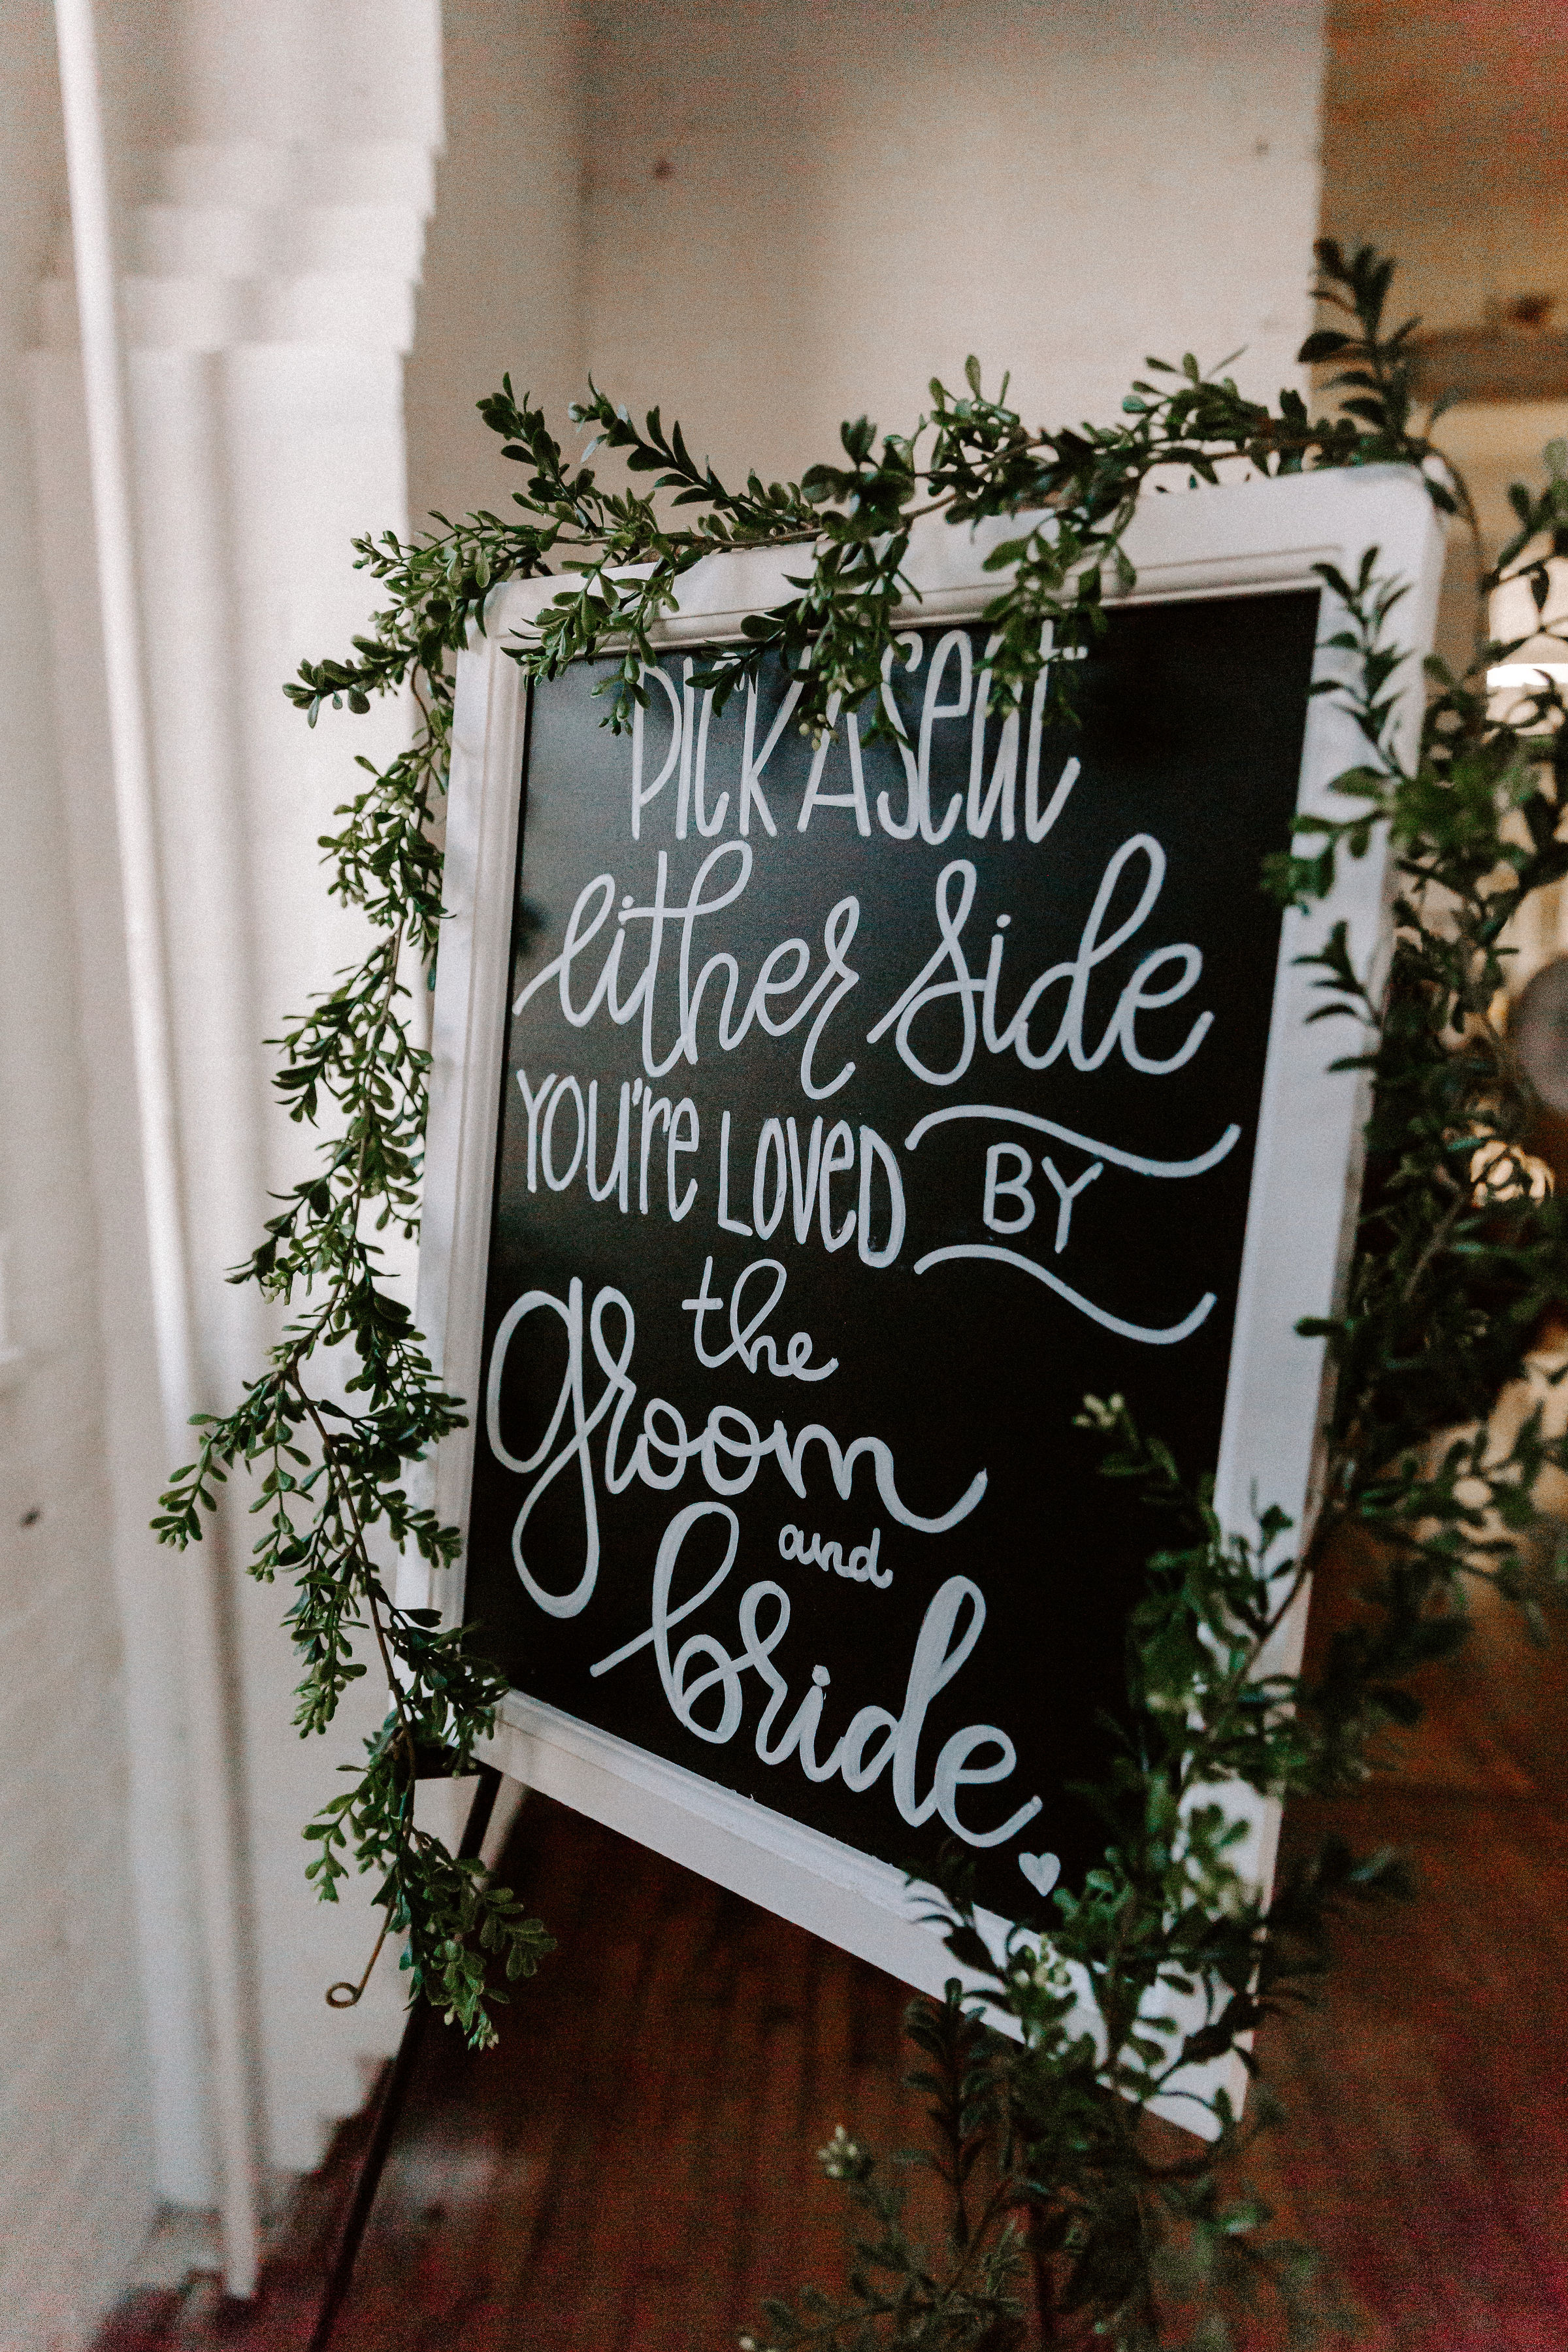 PICK A SEAT
either side
YOU'RE LOVED BY
the
groom
and
bride